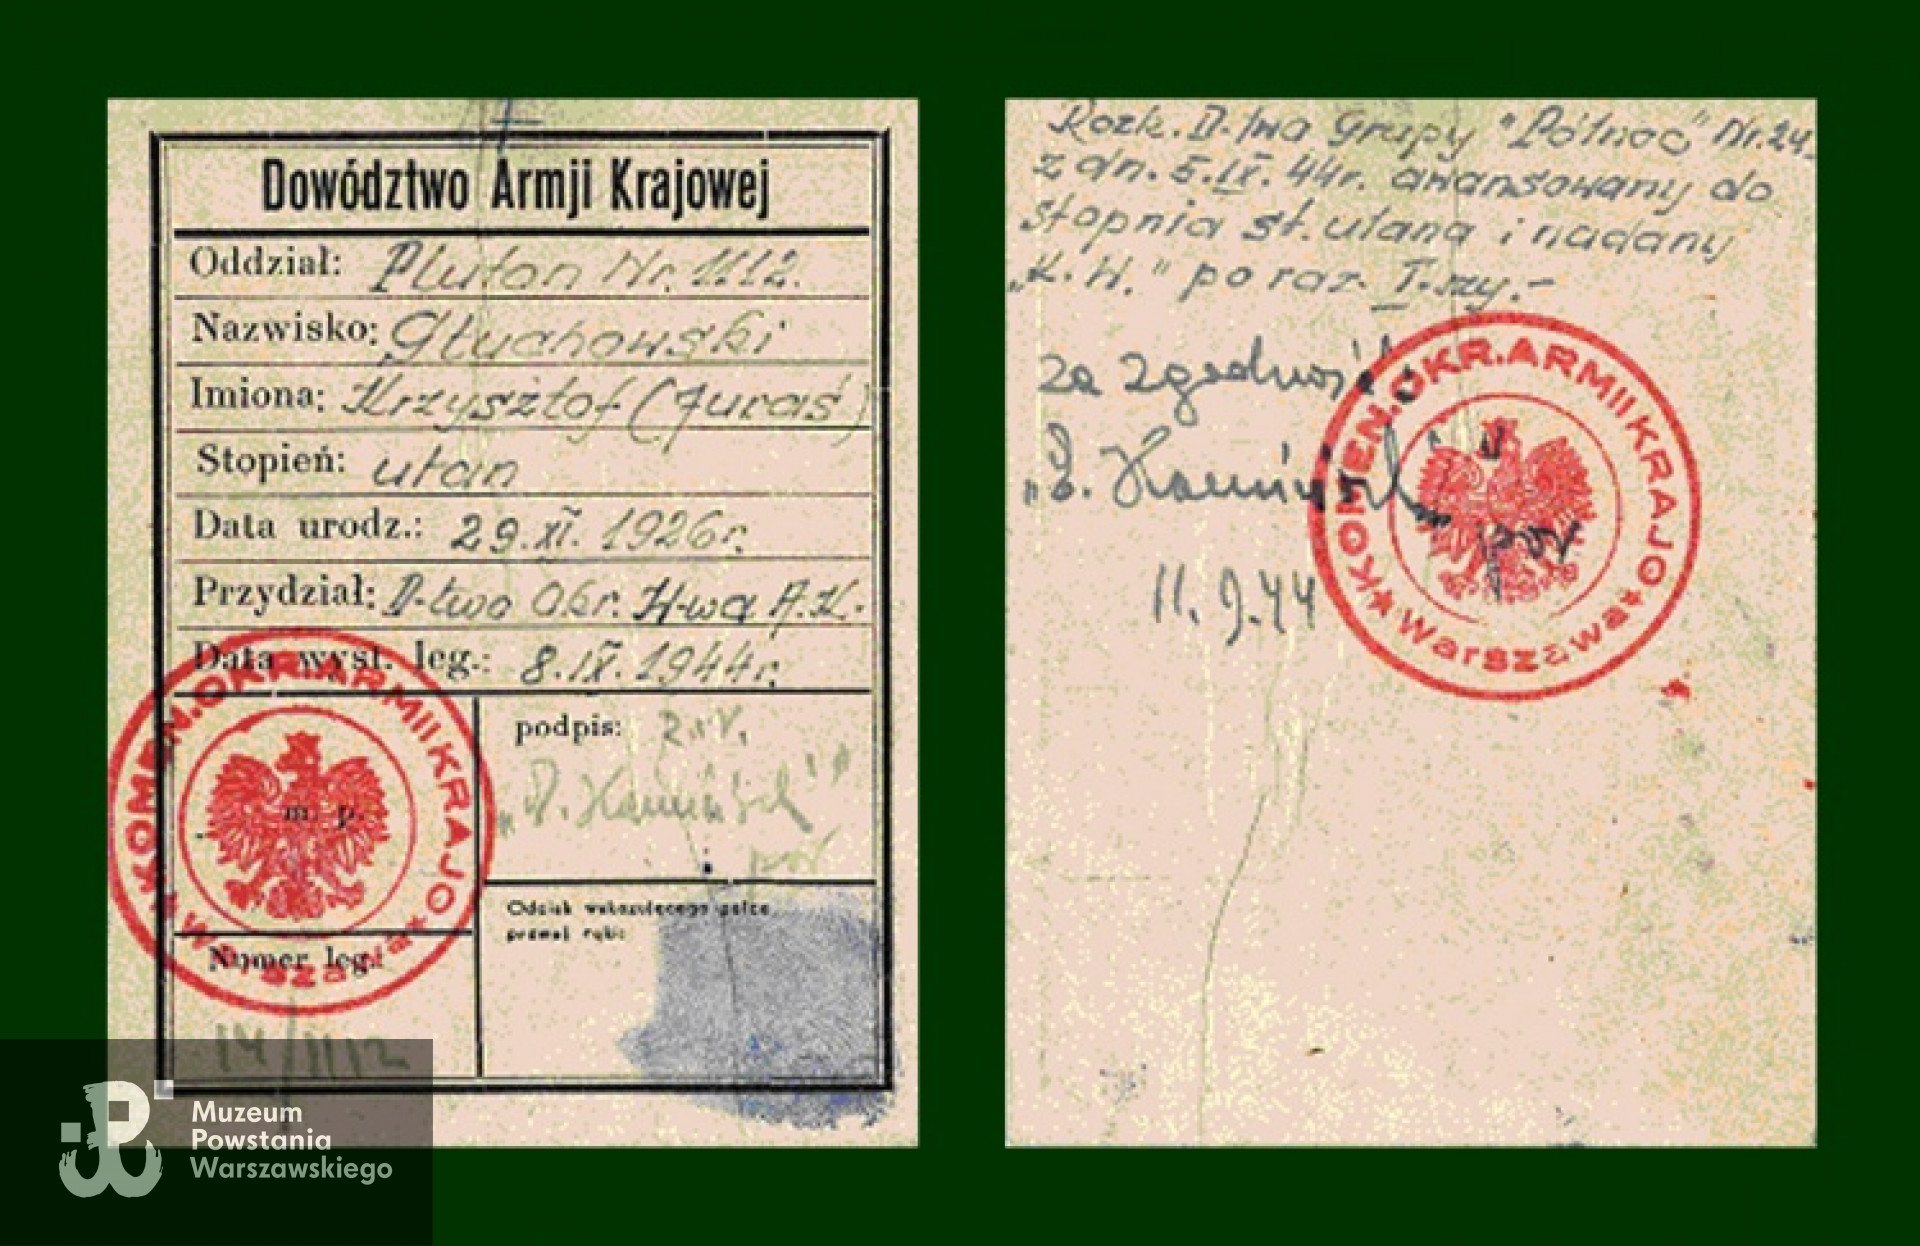 Dowództwo Armji Krajowej
Oddział: Pluton Nr. 1112.
Nazwisko: Głuchowski
Imiona: Krzysztof (Juraś)
Stopień: ułan
Data urodz.: 29.XI. 1926r.
Przydział: D-two Okr. W-wa A.K.
Data wyst. leg.: 8.IX.1944r.
KOMEN.OKR.ARMII KRAJO
Warszawa
m. p.
podpis:
"B. Kamiński"
por
Odcisk wskazującego palca
prawej ręki:
Numer leg.:
14/1112
Muzeum
Powstania
Warszawskiego
Rozk. D-twa Grupy "Północ" Nr.24.
z dn. 5.IX.44r. awansowany do
stopnia st. ułana i nadany
"K.W." po raz I-szy.-
za zgodność
"B. Kamiński" por
11.9.44
KOMEN.OKR.ARMII KRAJO
Warszawa